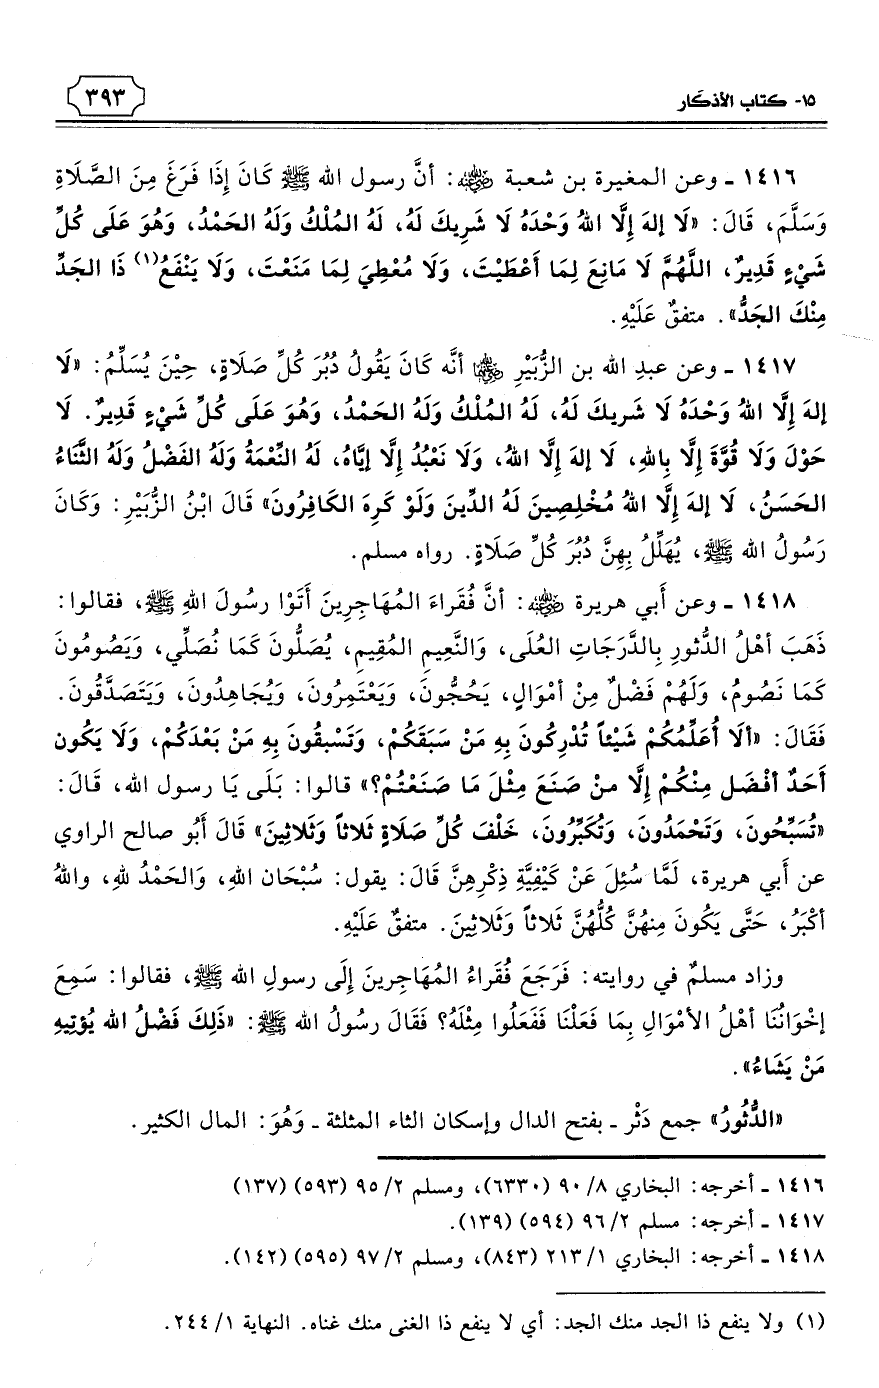 ١٥- كتاب الأذكار
٣٩٣
١٤١٦ ـ وعن المغيرة بن شعبة ﵁: أنَّ رسول الله ﷺ كَانَ إِذَا فَرَغَ مِنَ الصَّلَاةِ
وَسَلَّمَ، قَالَ: «لَا إلهَ إِلَّا اللهُ وَحْدَهُ لَا شَرِيكَ لَهُ، لَهُ المُلْكُ وَلَهُ الحَمْدُ، وَهُوَ عَلَى كُلِّ
شَيْءٍ قَدِيرٌ، اللَّهُمَّ لَا مَانِعَ لِمَا أَعْطَيْتَ، وَلَا مُعْطِيَ لِمَا مَنَعْتَ، وَلَا يَنْفَعُ(١) ذَا الجَدِّ
مِنْكَ الجَدُّ». متفقٌ عَلَيْهِ.
١٤١٧ ـ وعن عبدِ الله بن الزُّبَيْرِ ﵄ أنَّه كَانَ يَقُولُ دُبُرَ كُلِّ صَلَاةٍ، حِيْنَ يُسَلِّمُ: «لَا
إلهَ إِلَّا اللهُ وَحْدَهُ لَا شَرِيكَ لَهُ، لَهُ المُلْكُ وَلَهُ الحَمْدُ، وَهُوَ عَلَى كُلِّ شَيْءٍ قَدِيرٌ. لَا
حَوْلَ وَلَا قُوَّةَ إِلَّا بِاللهِ، لَا إلهَ إِلَّا اللهُ، وَلَا نَعْبُدُ إِلَّا إيَّاهُ، لَهُ النِّعْمَةُ وَلَهُ الفَضْلُ وَلَهُ الثَّنَاءُ
الحَسَنُ، لَا إلهَ إِلَّا اللهُ مُخْلِصِينَ لَهُ الدِّينَ وَلَوْ كَرِهَ الكَافِرُونَ» قَالَ ابْنُ الزُّبَيْرِ: وَكَانَ
رَسُولُ الله ﷺ، يُهَلِّلُ بِهِنَّ دُبُرَ كُلِّ صَلَاةٍ. رواه مسلم.
١٤١٨ ـ وعن أَبي هريرة ﵁: أنَّ فُقَراءَ المُهَاجِرِينَ أَتَوْا رسُولَ اللهِ ﷺ، فقالوا:
ذَهَبَ أهْلُ الدُّثورِ بِالدَّرَجَاتِ العُلَى، وَالنَّعِيمِ المُقِيمِ، يُصَلُّونَ كَمَا نُصَلِّي، وَيَصُومُونَ
كَمَا نَصُومُ، وَلَهُمْ فَضْلٌ مِنْ أمْوَالٍ، يَحُجُّونَ، وَيَعْتَمِرُونَ، وَيُجَاهِدُونَ، وَيَتَصَدَّقُونَ.
فَقَالَ: «ألَا أُعَلِّمُكُمْ شَيْئاً تُدْرِكُونَ بِهِ مَنْ سَبَقَكُمْ، وَتَسْبِقُونَ بِهِ مَنْ بَعْدَكُمْ، وَلَا يَكُون
أَحَدٌ أفْضَل مِنْكُمْ إِلَّا منْ صَنَعَ مِثْلَ مَا صَنَعْتُمْ؟» قالوا: بَلَى يَا رسول الله، قَالَ:
«تُسَبِّحُونَ، وَتَحْمَدُونَ، وَتُكَبِّرُونَ، خَلْفَ كُلِّ صَلَاةٍ ثَلاثاً وَثَلاثِينَ» قَالَ أَبُو صالح الراوي
عن أَبي هريرة، لَمَّا سُئِلَ عَنْ كَيْفِيَّةِ ذِكْرِهِنَّ قَالَ: يقول: سُبْحَان اللهِ، وَالحَمْدُ للهِ، واللهُ
أكْبَرُ، حَتَّى يَكُونَ مِنهُنَّ كُلُّهُنَّ ثَلاثاً وَثَلاثِينَ. متفقٌ عَلَيْهِ.
وزاد مسلمٌ في روايته: فَرَجَعَ فُقَراءُ المُهَاجِرينَ إِلَى رسولِ الله ﷺ، فقالوا: سَمِعَ
إخْوَانُنَا أهْلُ الأمْوَالِ بِمَا فَعَلْنَا فَفَعَلُوا مِثْلَهُ؟ فَقَالَ رسُولُ الله ﷺ: «ذَلِكَ فَضْلُ الله يُؤتِيهِ
مَنْ يَشَاءُ».
«الدُّثُورُ» جمع دَثْر ـ بفتح الدال وإسكان الثاء المثلثة ـ وَهُوَ: المال الكثير.
١٤١٦ ـ أخرجه: البخاري ٨/ ٩٠ (٦٣٣٠)، ومسلم ٢/ ٩٥ (٥٩٣) (١٣٧)
١٤١٧ ـ أخرجه: مسلم ٢/ ٩٦ (٥٩٤) (١٣٩).
١٤١٨ ـ أخرجه: البخاري ١/ ٢١٣ (٨٤٣)، ومسلم ٢/ ٩٧ (٥٩٥) (١٤٢).
(١) ولا ينفع ذا الجد منك الجد: أي لا ينفع ذا الغنى منك غناه. النهاية ١/ ٢٤٤.